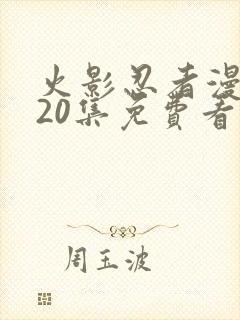 火影忍者漫
20集免費看
周玉波